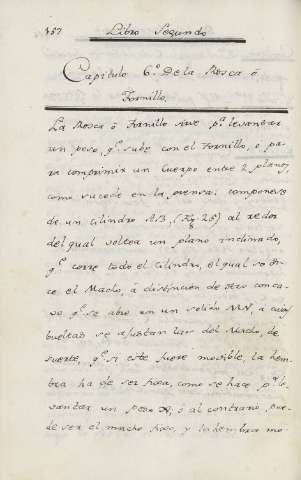 157 Libro Segundo
Capitulo 6.º De la Rosca ó
Tornillo,
La Rosca ó Tornillo sirve p.ª levantar
un peso, q.e sube con el Tornillo, o pa
ra comprimir un Cuerpo entre 2 planos,
como sucede en la prensa: componese
de un cilindro AB, (Fig 25) al redor
del qual voltea un plano inclinado,
q.e corre todo el cilindro, el qual se di-
ce el Macho, á distincion de otro conca-
vo, q.e se abre en un solido MN, á cuias
bueltas se ajustan las del Macho, de
suerte, q.e si este fuere movible, la hem-
bra ha de ser fixa, como se hace p.ª le-
vantar un peso A, ó al contrario, pue-
de ser el macho fixo, y la hembra mo-